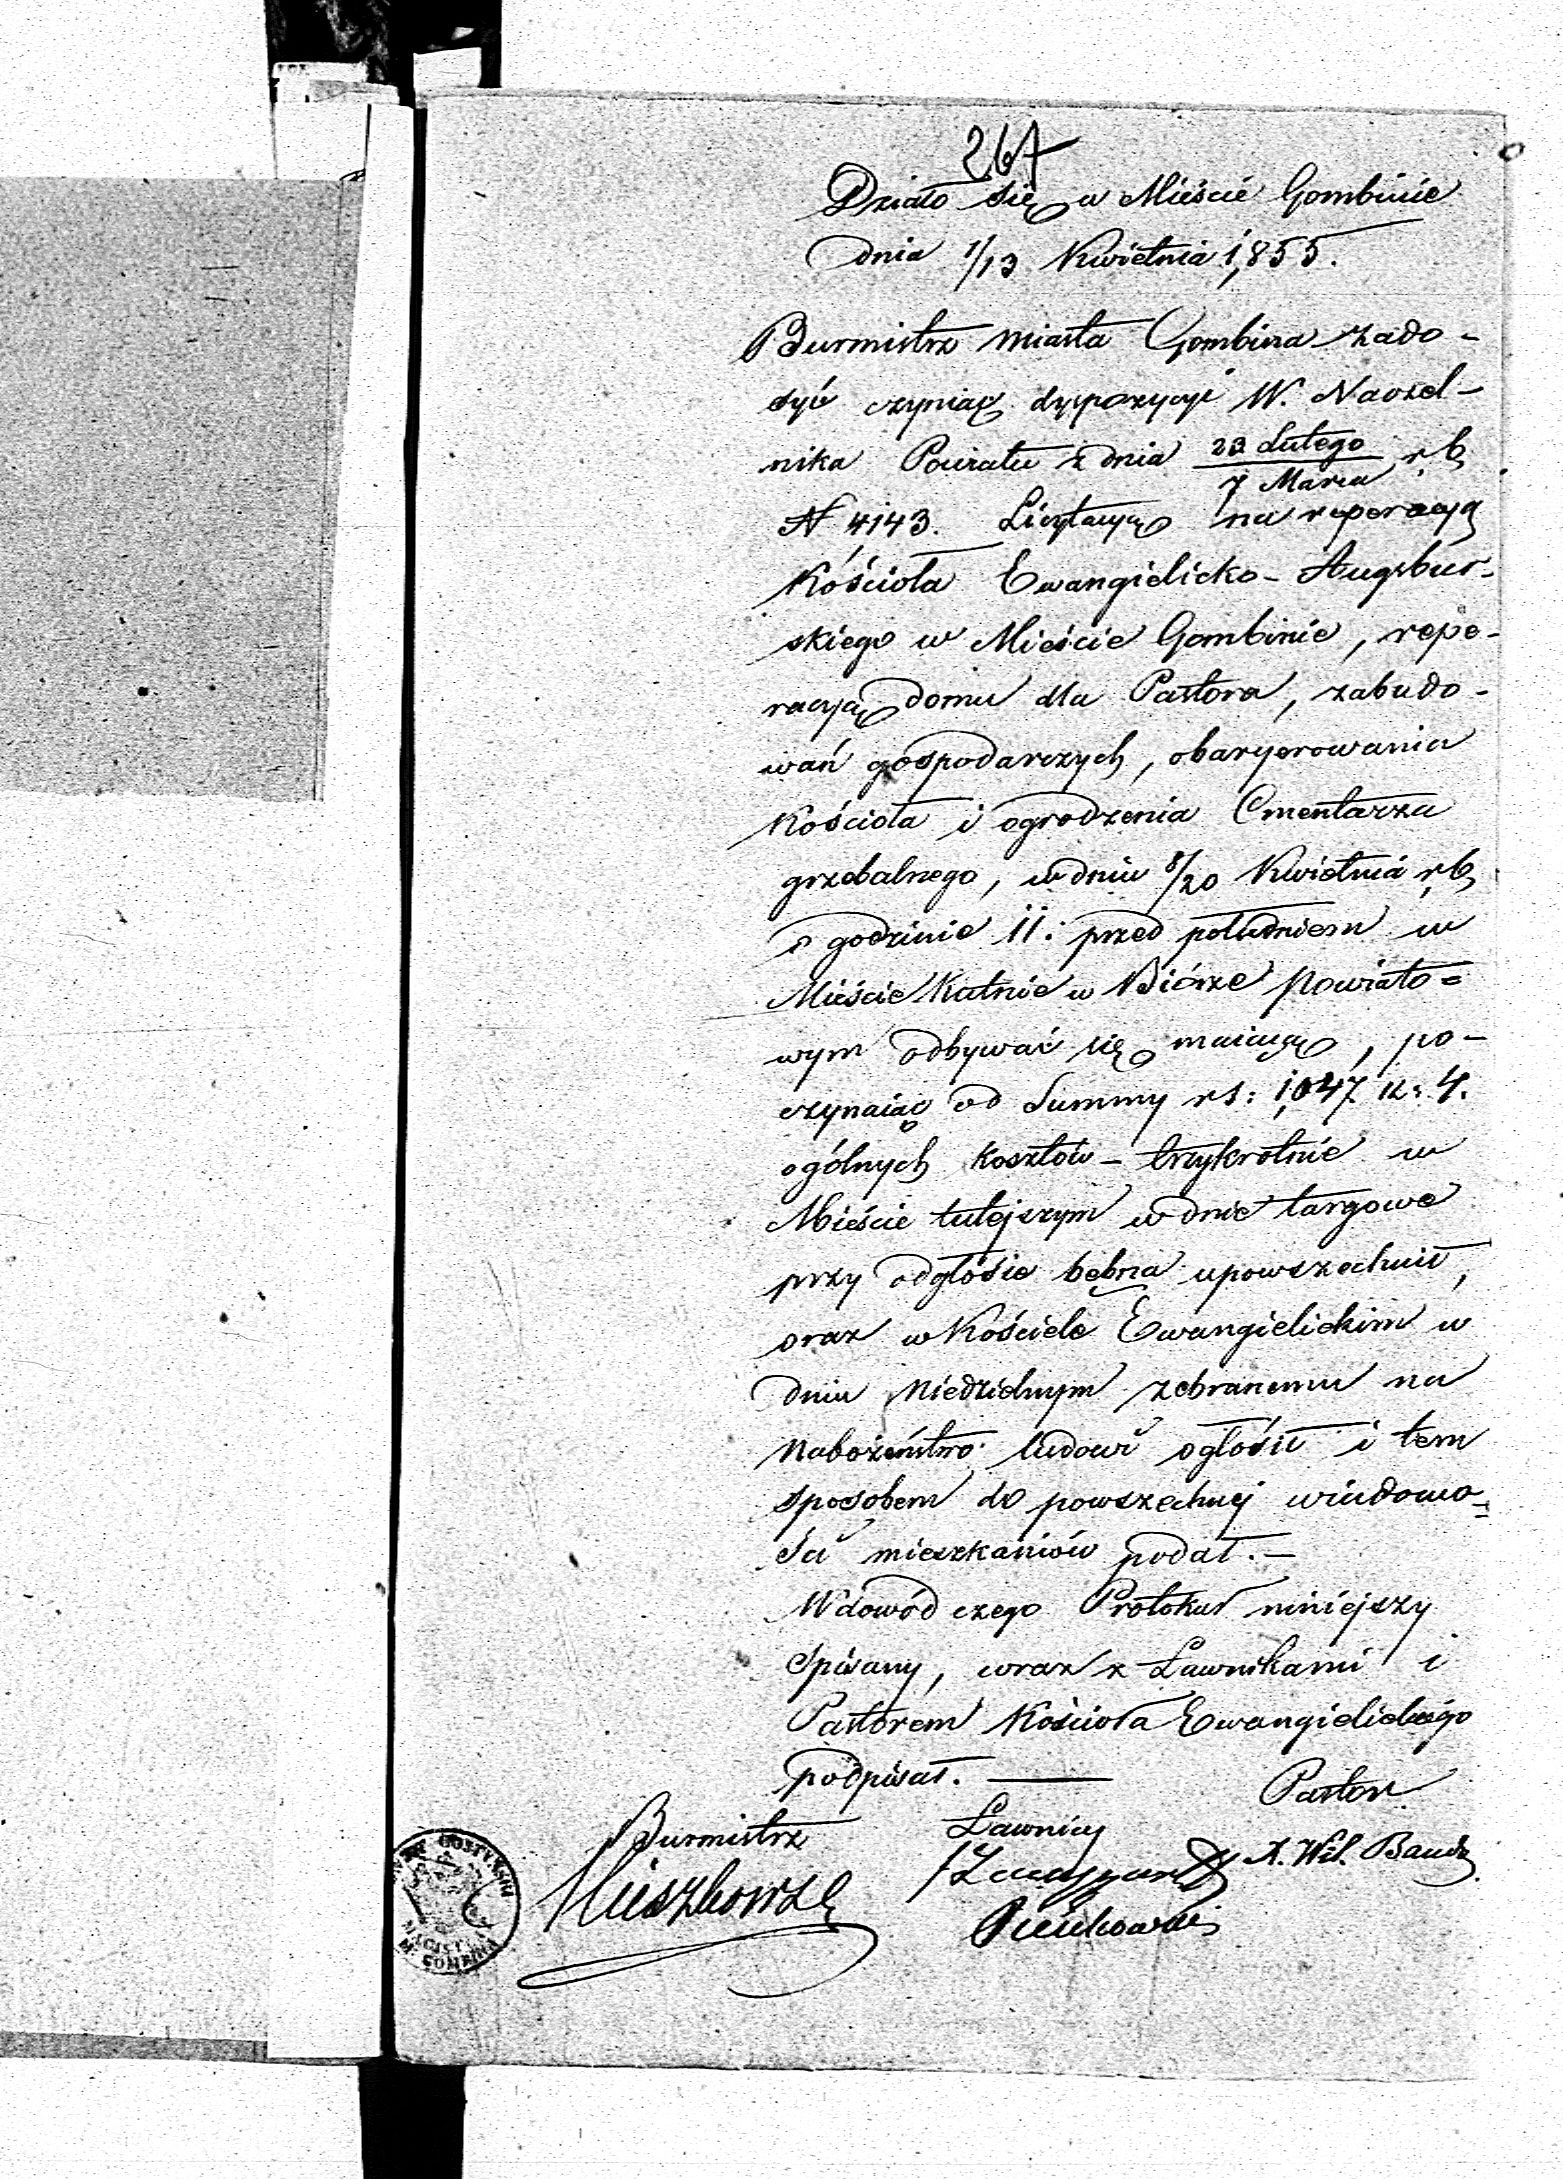 267
Działo się w Mieście Gombinie
dnia 1/13 Kwietnia 1,855.
Burmistrz miasta Gombina zado-
syć czyniąc dyspozycyi W. Naczel-
nika Powiatu z dnia 23 Lutego / 7 Marca r b
N 4143. Licytacyą na reperacyą
Kościoła Ewangielicko-Augsbur-
skiego w Mieście Gombinie, repe-
racyą domu dla Pastora, zabudo-
wań gospodarczych, obaryerowania
Kościoła i ogrodzenia Cmentarza
grzebalnego, w dniu 8/20 Kwietnia r b
o godzinie 11: przed południem w
Mieście Kutnie w Biórze Powiato-
wym odbywać się maiącą, po-
czynaiąc od Summy rs: 1,047 k: 4.
ogólnych kosztów - trzykrotnie w
Mieście tutejszym w dnie targowe
przy odgłosie bębna upowszechnił,
oraz w Kościele Ewangielickim w
dniu Niedzielnym zebranemu na
Nabożeństwo ludowi ogłosił i tem
sposobem do powszechnej wiadomo-
ści mieszkańców podał.-
W dowód czego Protokuł niniejszy
spisany, wraz z Ławnikami i
Pastorem Kościoła Ewangielickiego
podpisał. —
Pastor
Burmistrz Ławnicy
A. Wil. Bando
Mieszkowski
GOSTYŃSKI
MAGIST
M. GOMBINA